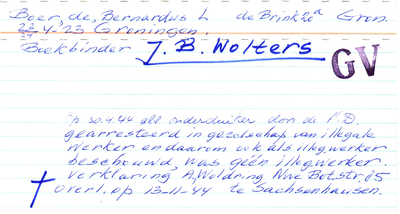 Boer, de, Bernardus L de Brink 20a Gron.
22/27 4-23 Groningen.
Boekbinder J. B. Wolters
GV
op 30.4.44 als onderduiker door de S.D.
gearresteerd in gezelschap van illegale
werker en daarom ook als illeg. werker
beschouwd, was géén illeg. werker.
Verklaring A, Woldring Nwe Botstr. 85
overl. op 13-11-44 te Sachsenhausen.